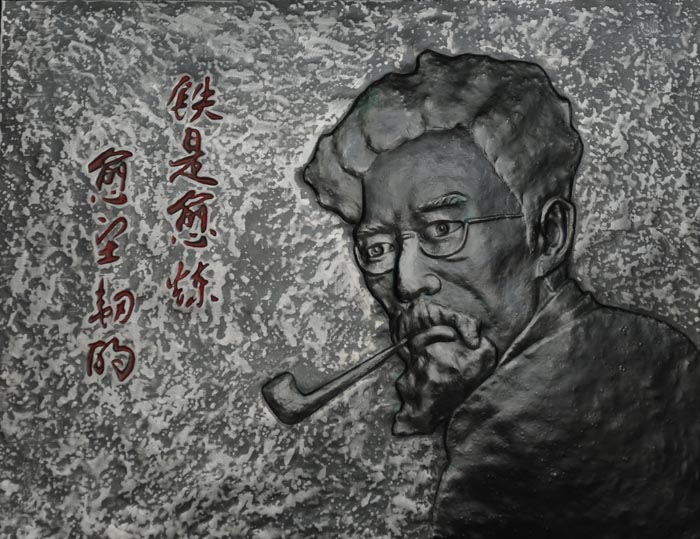 铁是愈炼
愈坚韧的